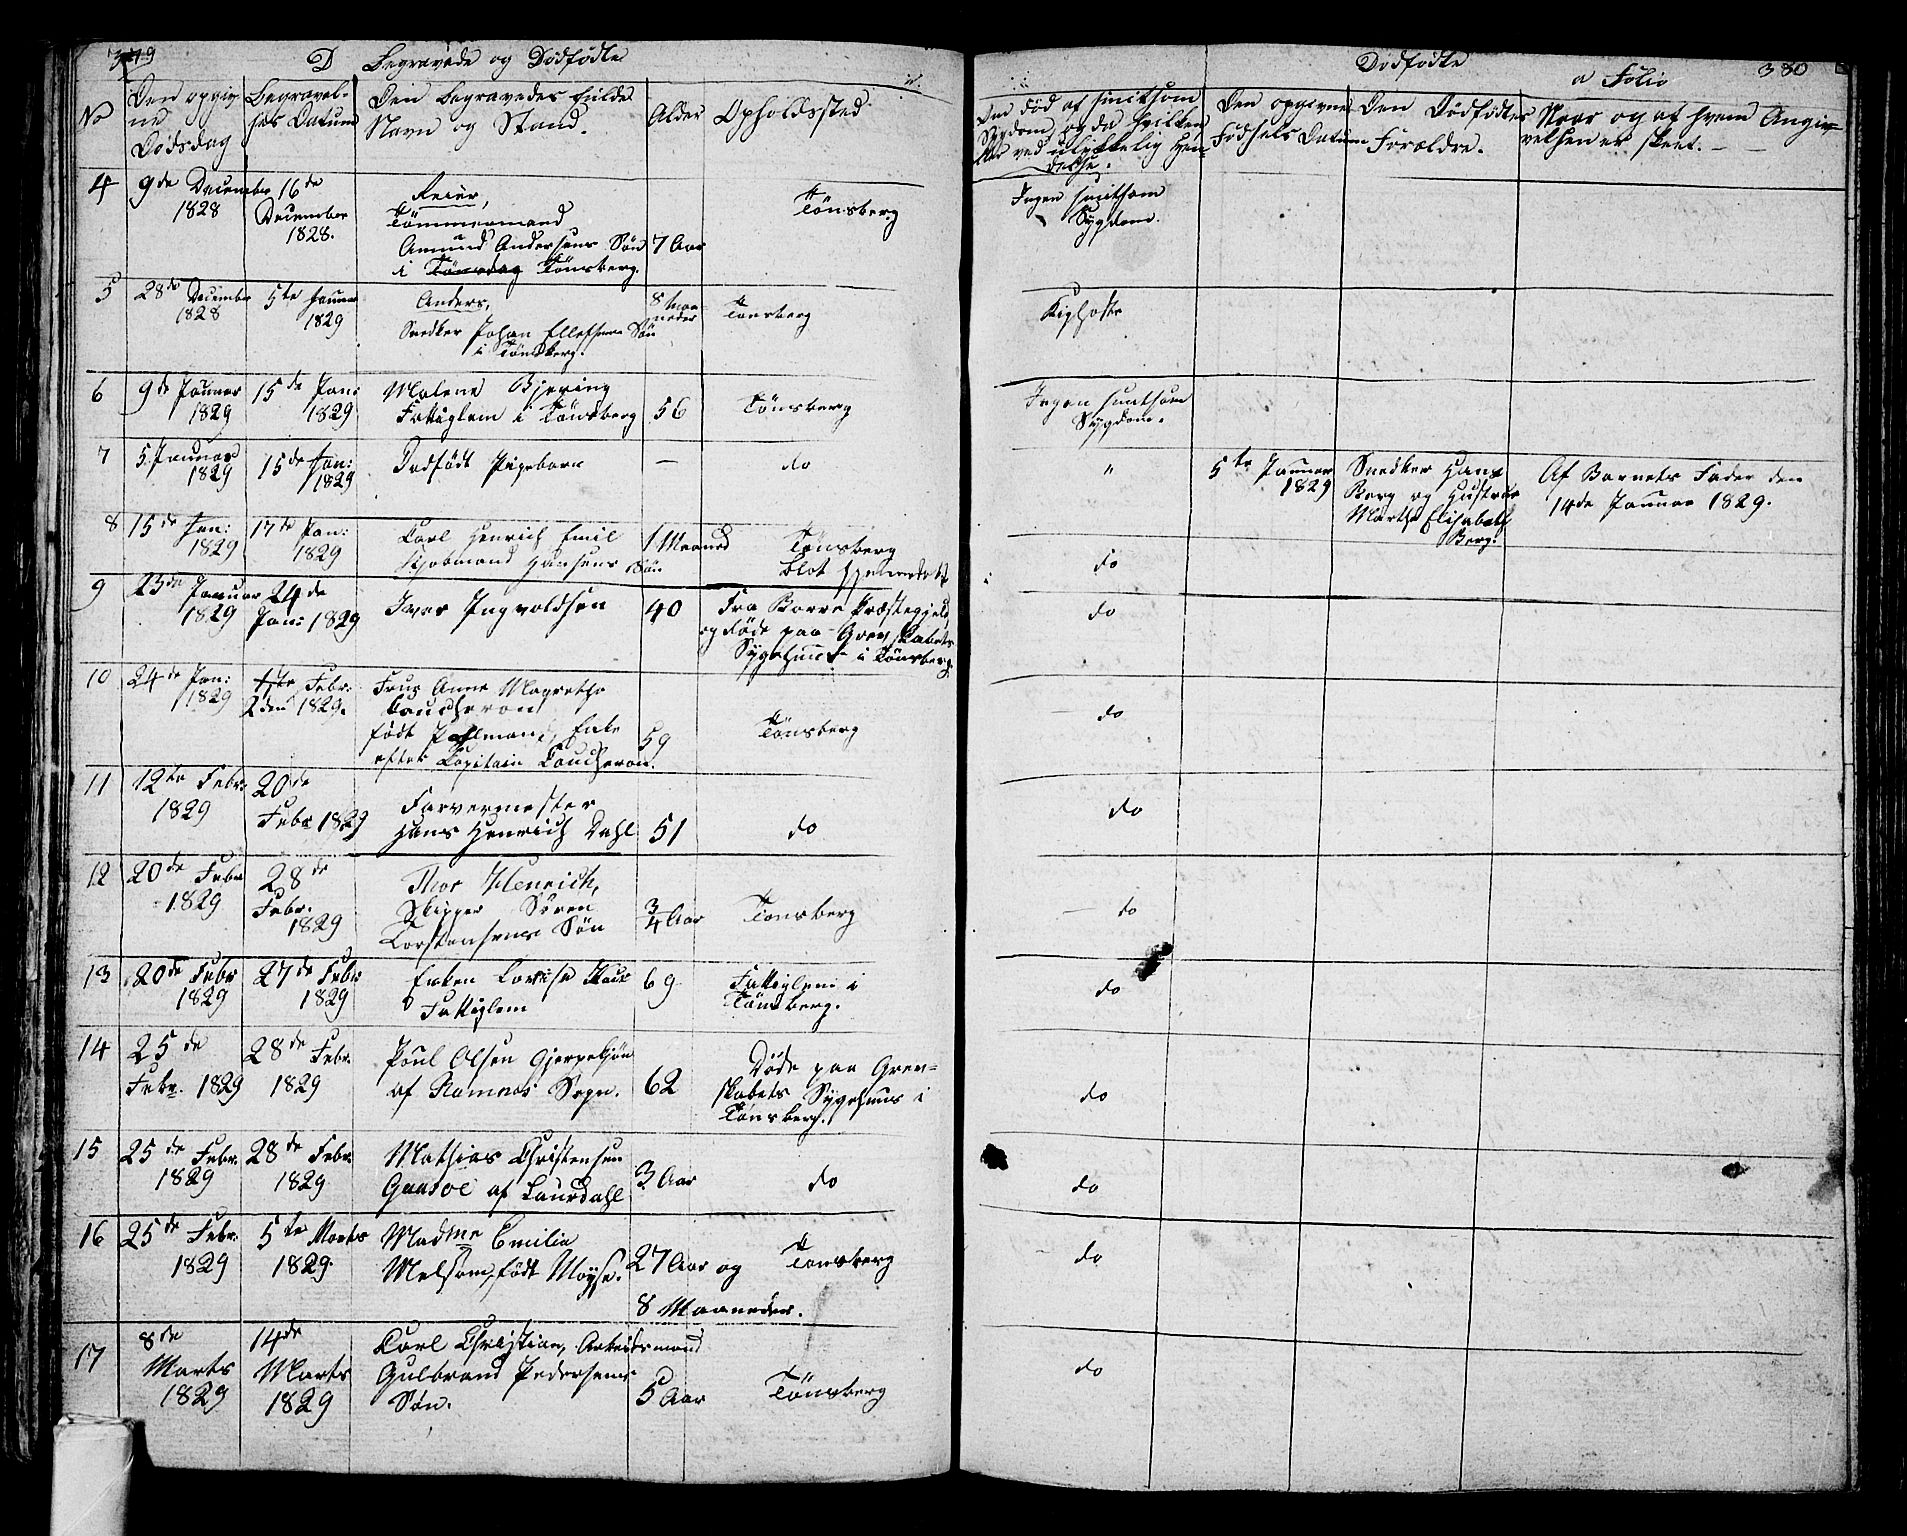 379
D Begravede og Dødfødte
No
Den opgiv-
ne
Dødsdag
Begravel-
ses Datum
Den Begravedes fulde
Navn og Stand.
Alder
Opholdssted
4
9de December
1828
16de
December
1828.
Reier,
Tømmermand
Amund Andersens Søn
i Tønsberg.
7 Aar
Tönsberg
5
28de December
1828
5te Januar
1829
Anders,
Snedker Johan Ellefsens Søn
i Tönsberg.
8 Maa
neder
Tönsberg
6
9de Januar
1829
15de Jan:
1829
Malene Bjering
Fattiglem i Tönsberg
56
Tönsberg
7
5. Januar
1829
15de Jan:
1829
Dødfødt Pigebarn
—
do
8
15de Jan:
1829
17de Jan:
1829
Carl Henrich Emil
Kjøbmand Hansens Søn
1 Maaned
Tönsberg
blot hjemmedøbt
9
23de Januar
1829
24de
Jan: 1829
Iver Ingvoldsen
40
Fra Borre Præstegjeld
og døde paa Grevskabets
Sygehuus i Tönsberg.
10
24de Jan:
1829
1ste Febr:
2den 1829.
Frue Anne Magrethe
Coucheron
født , Enke
efter Capitain Coucheron.
59
Tönsberg
11
12te Febr:
1829
20de
Febr 1829
Farvermester
Hans Henrich Dahl
51
do
12
20de Febr
1829
28de
Febr.
1829
Thor Henrich,
Skipper Søren
Torstensens Søn
3/4 Aar
Tönsberg
13
20de Febr
1829
27de Febr
1829
Enken Lovise
Fattiglem
69
Fattiglem i
Tönsberg.
14
25de
Febr. 1829
28de Febr.
1829
Poul Olsen Gjerpekjøn
af Ramnes Sogn.
62
Døde paa Grev=
skabets Sygehuus i
Tönsberg.
15
25de Febr.
1829
28de Febr.
1829
Mathias Christensen
Gaasoe af Laurdahl
3 Aar
do
16
25de Febr.
1829
5te Marts
1829.
Madme Emilia
Melsom, født Møyse.
27 Aar og
8 Maaneder.
Tönsberg
17
8de
Marts
1829
14de
Marts
1829
Carl Christian, Arbeidsmand
Gulbrand Pedersens
Søn.
5 Aar
Tönsberg
Dødfødte
a Folio
380
Om død af smitsom
Sygdom, og da hvilken,
eller ved ulykkelig Hæn-
delse.
Den opgivne
Fødsels Datum
Den Dødfødtes
Forældre.
Naar og af hvem Angiv=
velsen er skeet. —
Ingen smitsom
Sygdom.
Kighoste
Ingen smitsom
Sygdom.
"
5te Januar
1829
Snedker Hans
Berg og Hustrue
Marthe Elisabeth
Berg.
Af Barnets Fader den
14de Januar 1829.
do
do
do
do
do
do
do
do
do
do